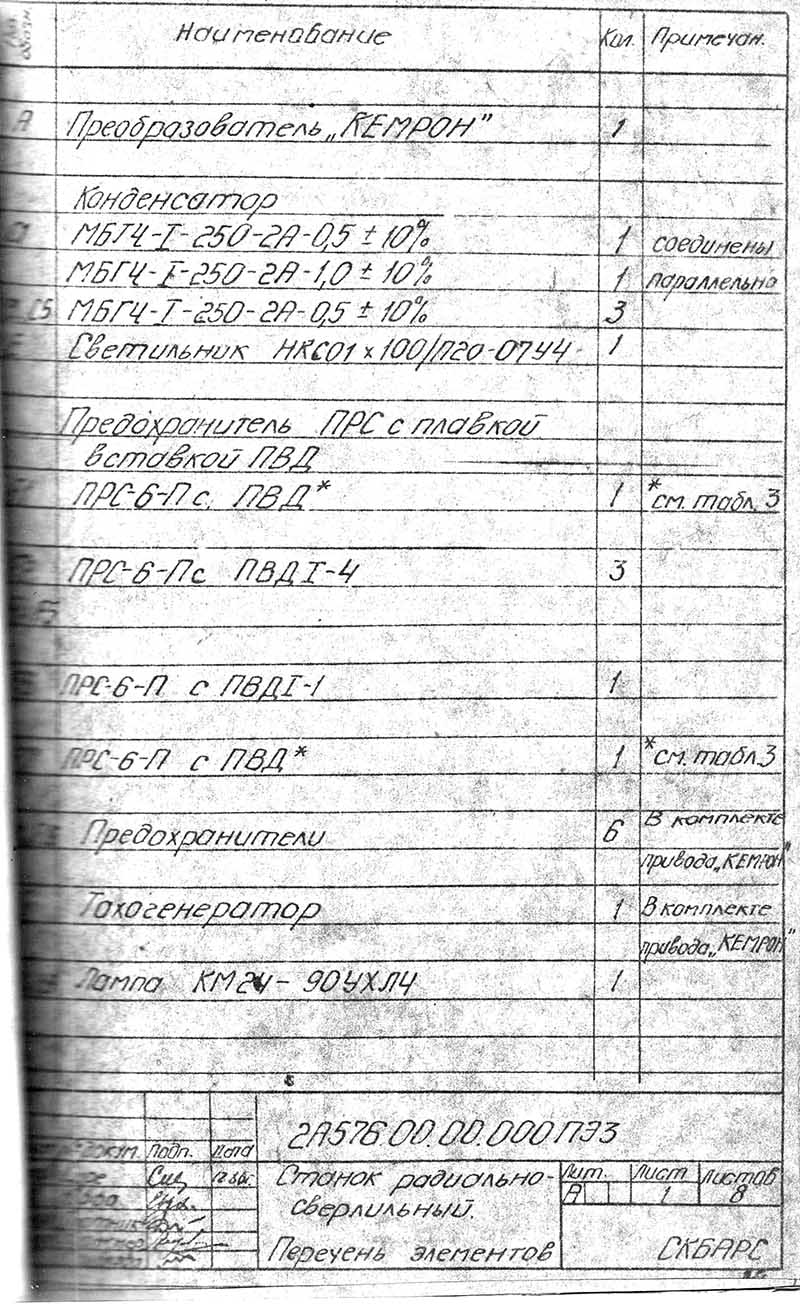 Наименование Кол. Примечан.
А Преобразователь „КЕМРОН" 1
Конденсатор
МБГЧ-I-250-2А-0,5 ± 10% 1 соединены
МБГЧ-I-250-2А-1,0 ± 10% 1 параллельно
С5 МБГЧ-I-250-2А-0,5 ± 10% 3
Светильник НКС01х100/П20-07У4 1
Предохранитель ПРС с плавкой
вставкой ПВД
ПРС-6-П с ПВД* 1 *см. табл. 3
ПРС-6-П с ПВДI-4 3
ПРС-6-П с ПВДI-1 1
ПРС-6-П с ПВД* 1 *см. табл. 3
Предохранители 6 В комплекте
привода „КЕМРОН"
Тахогенератор 1 В комплекте
привода „КЕМРОН"
Лампа КМ24-90УХЛ4 1
2А576.00.00.000ПЭ3
докум. Подп. Дата
Станок радиально-
сверлильный.
Лит. Лист Листов
А 1 8
Перечень элементов
СКБАРС